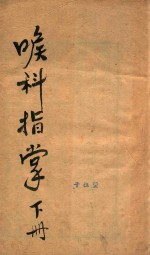 喉科指掌下册